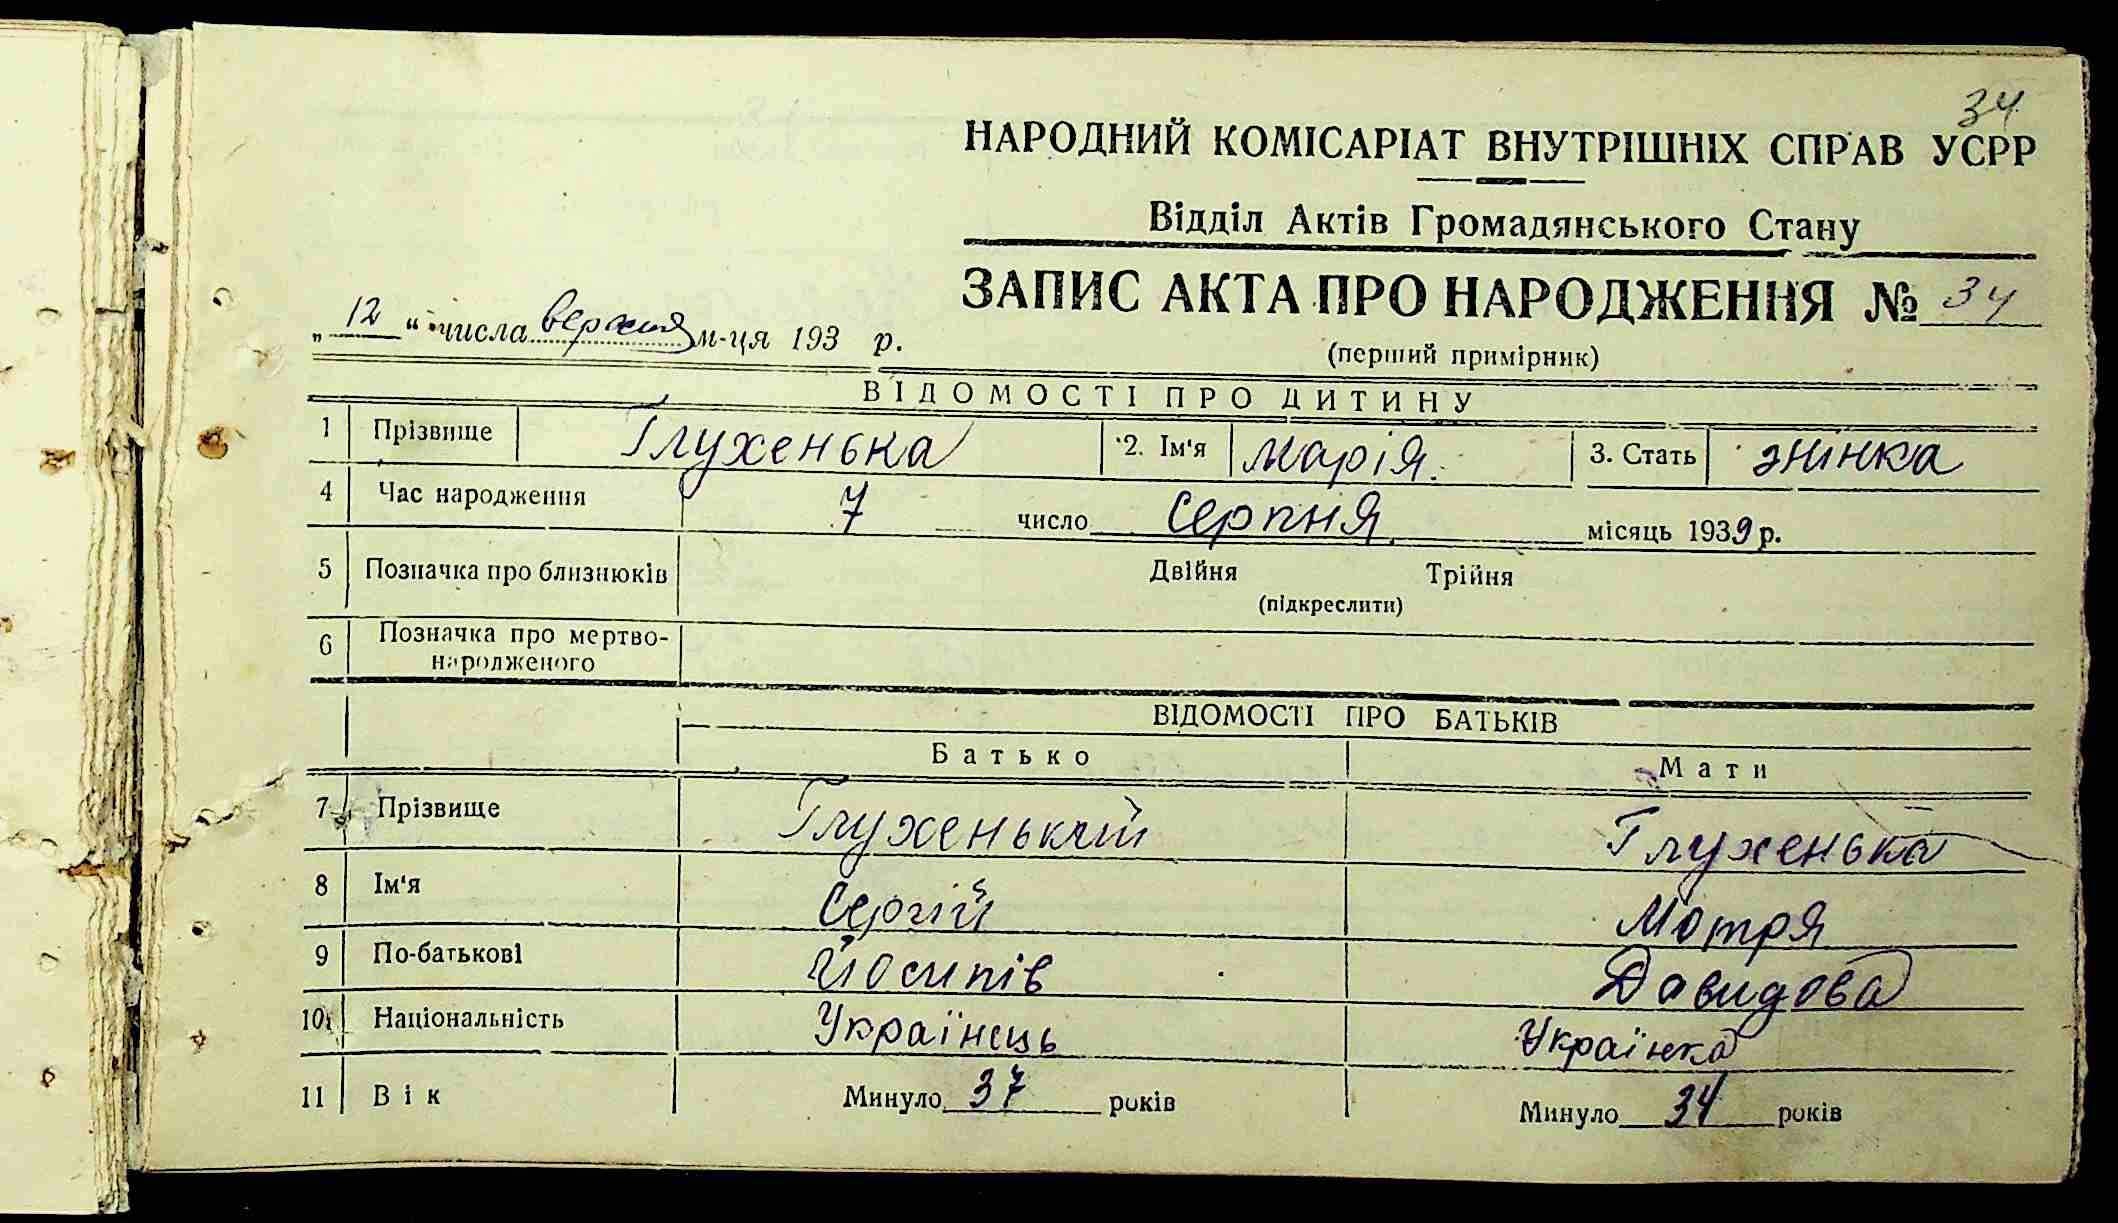 34
НАРОДНИЙ КОМІСАРІАТ ВНУТРІШНІХ СПРАВ УСРР
Відділ Актів Громадянського Стану
ЗАПИС АКТА ПРО НАРОДЖЕННЯ № 34
„ 12 “ числа вересня м-ця 193 р.
(перший примірник)
ВІДОМОСТІ ПРО ДИТИНУ
1 Прізвище Глухенька 2. Ім'я Марія. 3. Стать жінка
4 Час народження 7 число серпня місяць 1939 р.
5 Позначка про близнюків Двійня Трійня
(підкреслити)
6 Позначка про мертво-
народженого
ВІДОМОСТІ ПРО БАТЬКІВ
Батько Мати
7 Прізвище Глухенький Глухенька
8 Ім'я Сергій Мотря
9 По-батькові Йосипів Давидова
10 Національність Українець Українка
11 Вік Минуло 37 років Минуло 34 років